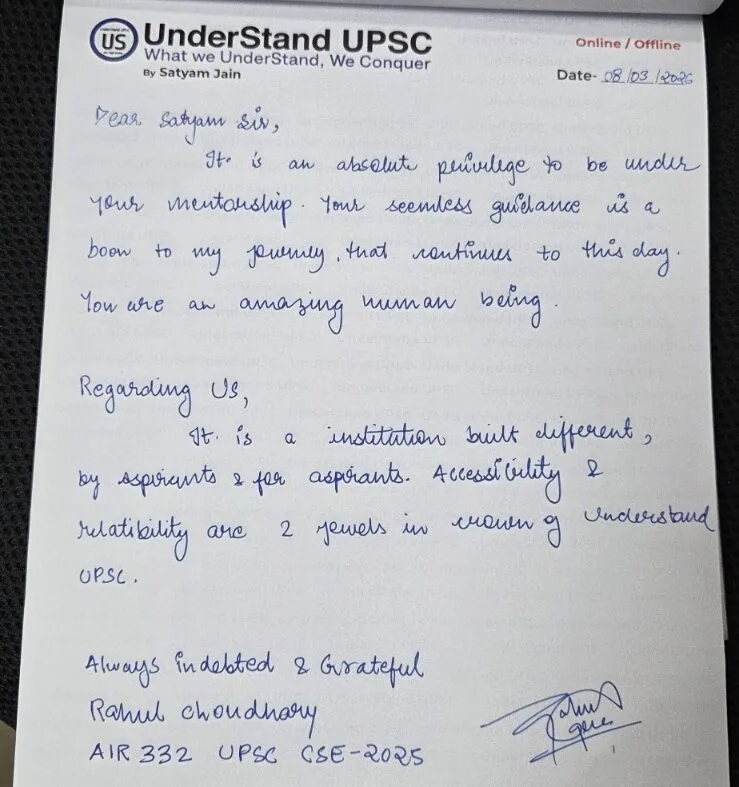 US
UnderStand UPSC
What we UnderStand, We Conquer
By Satyam Jain
Online / Offline
Date- 08/03/2026
Dear Satyam Sir,
It is an absolute privilege to be under
your mentorship. Your seemless guidance is a
boon to my journey, that continues to this day.
You are an amazing human being.
Regarding Us,
It is a institution built different,
by aspirants & for aspirants. Accessibility &
relatibility are 2 jewels in crown of Understand
UPSC.
Always indebted & Grateful
Rahul Choudhary
AIR 332 UPSC CSE-2025
Rahul